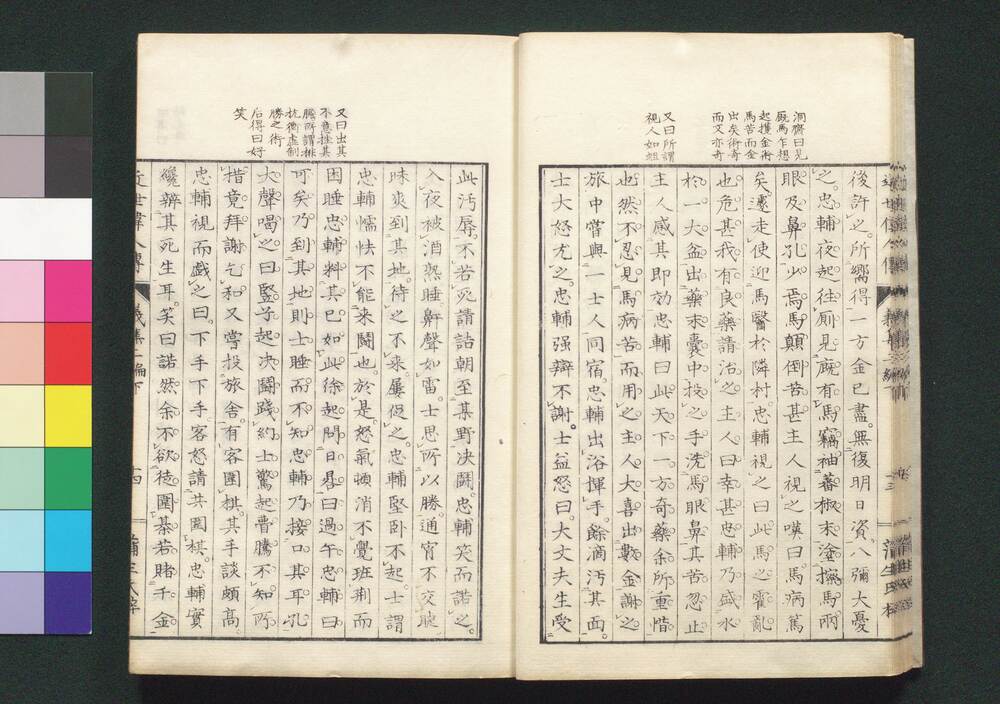 洞齋曰見
厩馬乍想
起攫金術
馬苦而金
出矣術奇
而文亦奇
又曰所謂
視人如蛆
後許之所嚮得一方金已盡無復明日資八彌大憂
之忠輔夜起往厠見廐有馬竊袖蕃椒末塗擦馬兩
眼及鼻孔少焉馬顛倒苦甚主人視之嘆曰馬病篤
矣遽走使迎馬醫於隣村忠輔視之曰此馬之霍亂
也危甚我有良藥請治之主人曰幸甚忠輔乃盛水
於一大盆出藥末囊中投之手洗馬眼鼻其苦忽止
主人感其即効忠輔曰此天下一方奇藥余所重惜
也然不忍見馬病苦而用之主人大喜出數金謝之
旅中嘗與一士人同宿忠輔出浴揮手餘滴汚其面
士大怒尤之忠輔强辯不謝士益怒曰大丈夫生受
又曰出其
不意挫其
所謂排
抗衝虚制
勝之術
后得曰好
笑
此汚辱不若死請詰朝至某野决鬪忠輔笑而諾之
入夜被酒熟睡鼾聲如雷士思所以勝通宵不交睫
昧爽到其地待之不来屢促之忠輔堅卧不起士謂
忠輔懦怯不能来鬪也於是怒氣頓消不覺班荆而
困睡忠輔料其已如此徐起問日晷曰過午忠輔曰
可矣乃到其地則士睡而不知忠輔乃接口其耳孔
大聲喝之曰竪子起决鬪踐約士驚起瞢騰不知所
措竟拜謝乞和又嘗投旅舎有客圍棋其手談頗高
忠輔視而戯之曰下手下手客怒請共圍棋忠輔實
纔辨其死生耳笑曰諾然余不欲徒圍棊若賭千金
近世偉人傳
義集二編下
十四